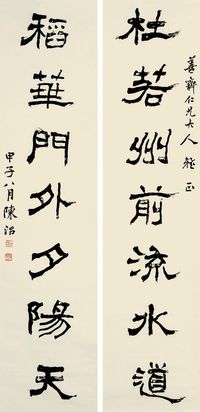 善齋仁兄大人雅正
杜若州前流水道
稻華門外夕陽天
甲子八月陳治